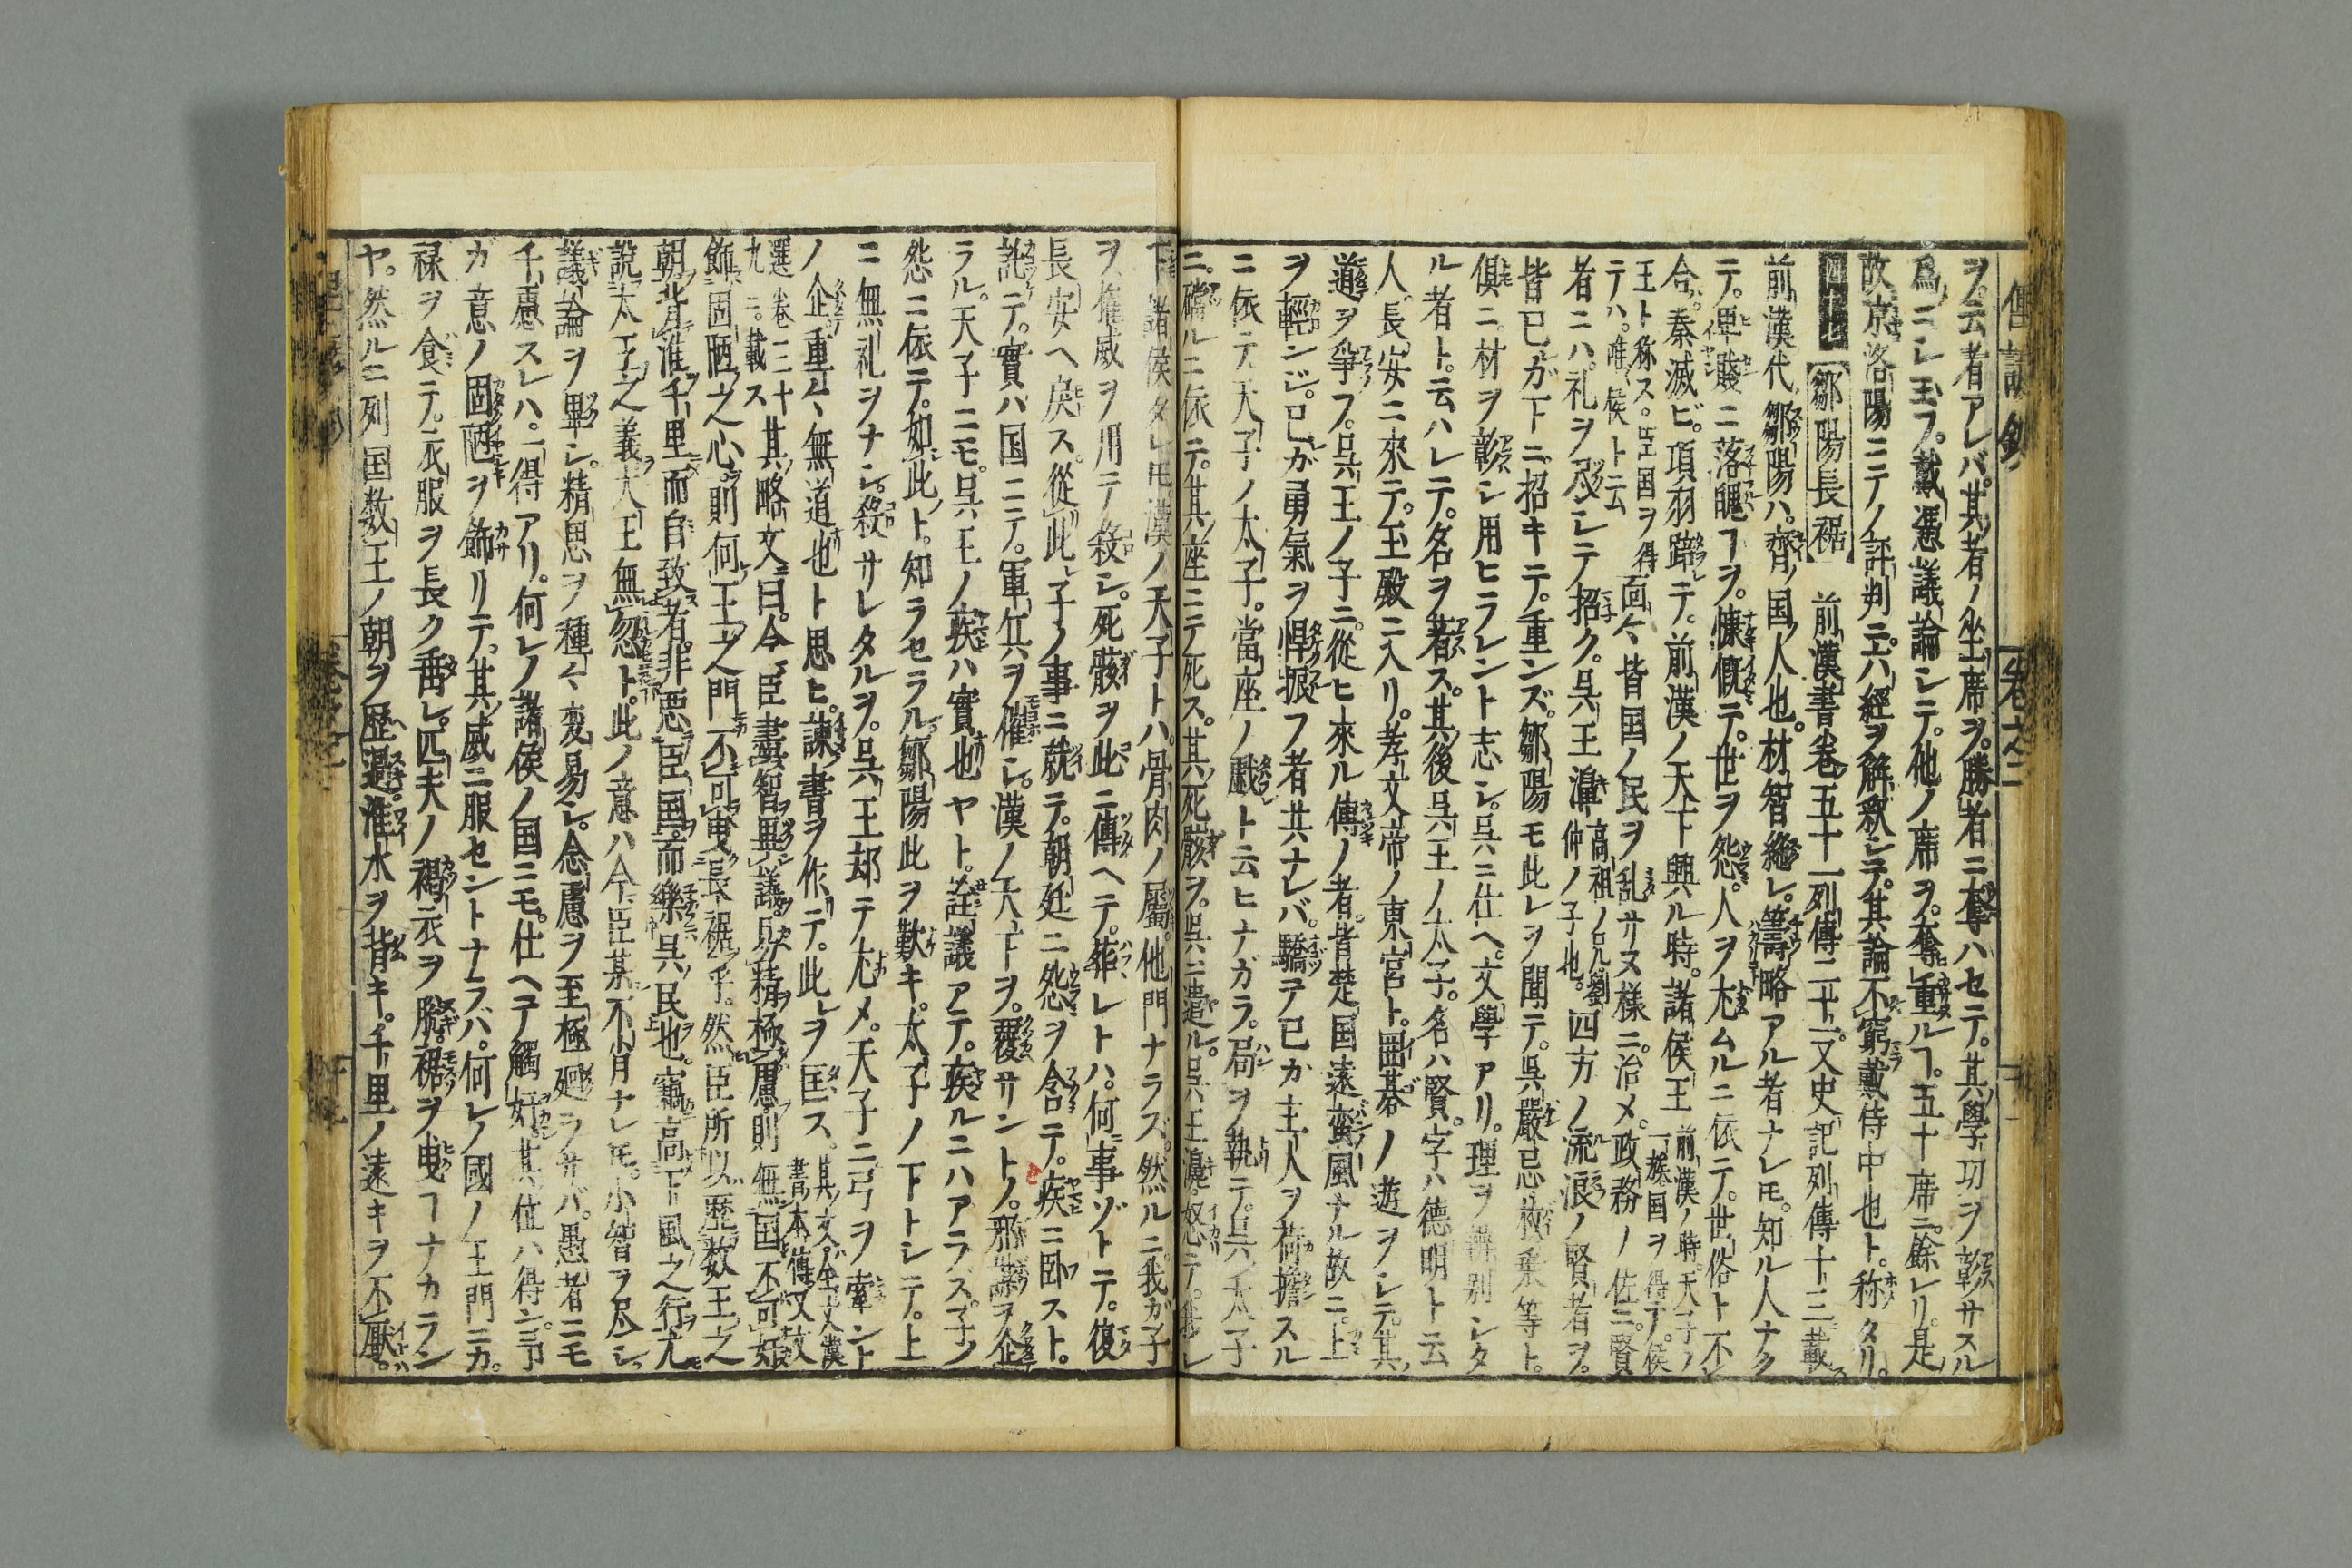 ヲ云者アレバ。其者ノ坐席ヲ。勝者ニ奪ハセテ。其學功ヲ彰サスル
爲ニレ玉フ。戴憑議論シテ。他ノ席ヲ奪重ルヿ。五十席ニ餘レリ。是
故京洛陽ニテノ評判ニ。六經ヲ解釈シテ。其論不窮戴侍中也ト。称タリ。
鄒陽長裾 前漢書卷五十一列傳二十一。又史記列傳十三載
前漢代鄒陽ハ。齊ノ国人也。材智絶レ。籌略アル者ナレ𪜈。知ル人ナク
テ。卑賤ニ落魄ヿヲ。慷慨テ。世ヲ怨。人ヲ尤ムルニ依テ。世俗ト不
合。秦滅ビ。項羽踣テ。前漢ノ天下興ル時。諸侯王 前漢ノ時。天子ノ一族国ヲ得テ。侯
王ト称ス。臣国ヲ得テハ。唯侯ト云 面々皆国ノ民ヲ乱サヌ様ニ。治メ。政務ノ佐ニ。賢
者ニハ。礼ヲ尽レテ招ク。呉王濞 高祖ノ兄劉仲ノ子也。 四方ノ流浪ノ賢者ヲ。
皆已ガ下ニ招キテ。重ンズ。鄒陽モ此レヲ聞テ。呉嚴忌枚乗等ト。
俱ニ材ヲ彰シ用ヒラレント志シ。呉ニ仕ヘ。文學アリ。理ヲ辨別レタ
ル者ト。云ハレテ。名ヲ著ス。其後呉王ノ太子。名ハ賢。字ハ德明ト云
人。長安ニ來テ。王殿ニ入リ。孝文帝ノ東宮ト。囲碁ノ遊ヲシテ。其
道ヲ爭フ。呉王ノ子ニ。從ヒ來ル傳ノ者。皆楚国遠蛮風ナル故ニ。上
ヲ輕ンジ。已ガ勇氣ヲ悍振フ者共ナレバ。驕テ已カ主人ヲ荷擔スル
ニ依テ。天子ノ太子。當座ノ戯ト云ヒナガラ。局ヲ執テ。呉太子
ニ。擲ルニ依テ。其座ニテ死ス。其死骸ヲ。呉ニ遣ル。呉王濞怒テ。我レ
下諸侯タレ𪜈。漢ノ天子トハ。骨肉ノ屬。他門ナラズ。然ルニ我ガ子
ヲ權威ヲ用テ殺シ。死骸ヲ此ニ傳ヘテ。葬レトハ。何事ゾトテ。復
長安ヘ戻ス。從此子ノ事ニ就テ。朝廷ニ怨ヲ含テ。疾ニ臥スト。
訛テ。實ハ国ニテ。軍兵ヲ催シ。漢ノ天下ヲ。覆サントノ。邪謀ヲ企
ラル。天子ニモ。呉王ノ疾ハ實也ヤト。詮議アテ。疾ルニハアラス。子ノ
怨ニ依テ。如此ト。知ラセラル。鄒陽此ヲ歎キ。太子ノ下トシテ。上
ニ無礼ヲナシ。殺サレタルヲ。呉王却テ尤メ。天子ニ弓ヲ牽ント
ノ企。重々無道也ト思ヒ。諫書ヲ作テ。此レヲ匡ス。 其文全文漢書本傳又文
選卷三十九ニ。載ス 其略文曰。今臣盡智畢議。易精極慮則無国不可奸
飾固陋之心。則何王之門不可曳長裾乎。然臣所以歴数王之
朝。背淮千里而自致者。非悪臣国而樂呉民也。竊高下風之行尤
説太王之義。大王無忽ト。此ノ意ハ今臣某不肖ナレ𪜈。小智ヲ尽シ
議論ヲ畢シ。精思ヲ種々変易シ。念慮ヲ至極廻ラサバ。愚者ニモ
千慮スレハ。一得アリ。何レノ諸侯ノ国ニモ。仕ヘテ觸奸。其位ハ得ン。予
ガ意ノ固陋ヲ飾リテ。其威ニ服セントナラバ。何レノ國ノ王門ニカ。
禄ヲ食テ。衣服ヲ長ク垂レ。匹夫ノ褐衣ヲ脱。裾ヲ曳ヿナカラン
ヤ。然ルニ列国数王ノ朝ヲ歴過。淮水ヲ背キ。千里ノ遠キヲ不厭。